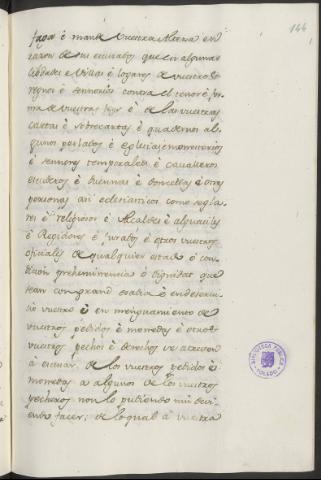 144
faga è mande Vuestra Alteza en
razon de su escusados que en algunas
Cibdades è Villas è logares de vuestros
regnos è sennorios contra el tenor è for
ma de vuestras leys è de las vuestras
cartas è sobrecartas è quadernos al
gunos perlados è eglesias è monesterios
è sennores temporales è cavalleros
escuderos è duennas è doncellas è otras
personas asi eclesiasticos como segla
res è religiosos è Alcaldes è alguaciles
è Regidores è jurados è otros vuestros
oficiales de qualquier estado ò con
dicion preheminencia ò dignidat que
sean con grand osadia è en deservi
cio vuestro è en menguamiento de
vuestros pedidos è monedas è otros
vuestros pechos è derechos se atreven
à escusar de los vuestros pedidos è
monedas a algunos de los vuestros
pecheros non lo pudiendo nin devi
endo facer; de lo qual à vuestra
BIBLIOTECA PUBLICA
TOLEDO